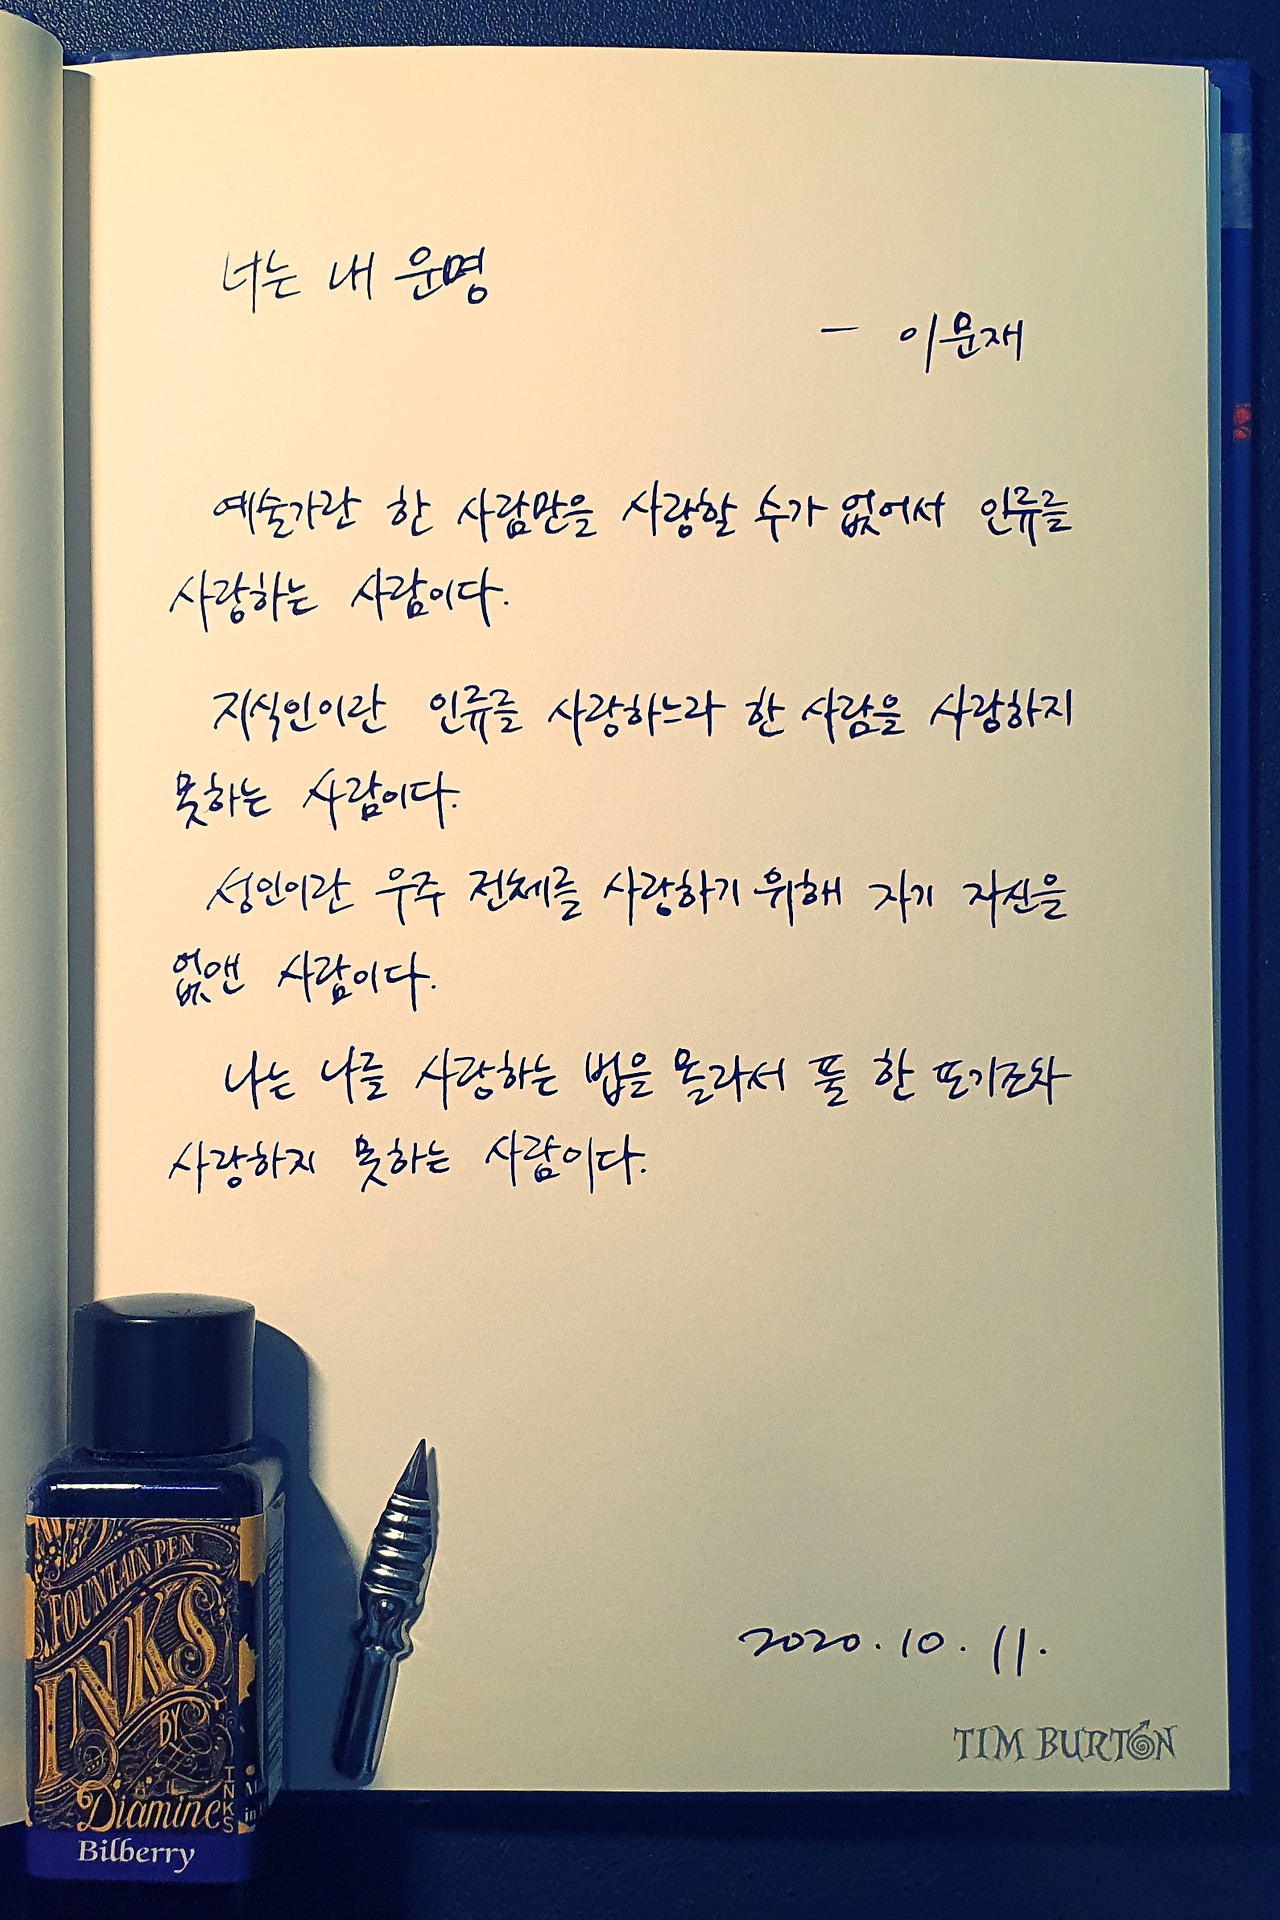 너는 내 운명
— 이문재
예술가란 한 사람만을 사랑할 수가 없어서 인류를
사랑하는 사람이다.
지식인이란 인류를 사랑하느라 한 사람을 사랑하지
못하는 사람이다.
성인이란 우주 전체를 사랑하기 위해 자기 자신을
없앤 사람이다.
나는 나를 사랑하는 법을 몰라서 풀 한 포기조차
사랑하지 못하는 사람이다.
2020. 10. 11.
TIM BURTON
FOUNTAIN PEN
INKS
BY
Diamine
INKS
Bilberry